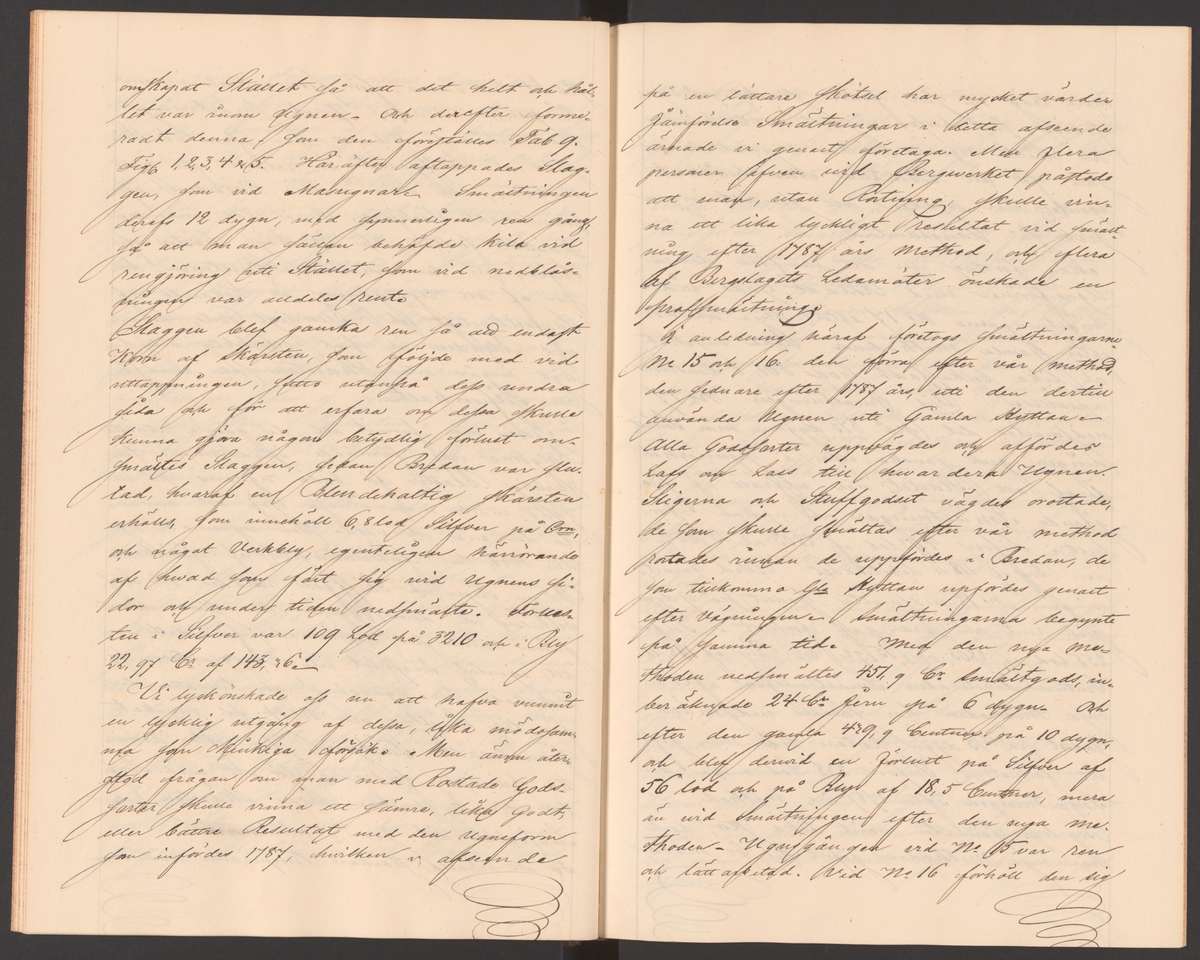 omskapat Stället så att det helt och hål-
let var inom Ugnen. Och derefter forme-
radt denna, som den föreställes Tab 9.
Fig. 1, 2, 3, 4 & 5. Härefter aftappades Slag-
gen, som vid Massugnart Smältningen
derefs 12 dygn, med synnerligen ren gång,
så att man sällan behöfde kila vid
rengjöring uti Stället, som vid nedblås-
ningen var aldeles rent.
Slaggen blef ganska ren så att endast
Korn af Skärsten, som följde med vid
uttappningen, sutto utanpå dess undra
sida och för att erfara om dessa skulle
kunna göra någon betydlig förlust om-
smältes Slaggen, sedan Bredan var slu-
tad, hvaraf en Blendehaltig Skärsten
erhölls, som innehöll 6,8 lod Silfver på Ctn,
och något Verkbly, egenteligen härrörande
af hvad som fäst sig vid Ugnens si-
dor och under tiden nedsmälte. Förlus-
ten i Silfver var 109 Lod på 3210 och i Bly
22,97 Cr af 143,76.
Vi lyckönskade oss nu att hafva vunnit
en lycklig utgång af dessa, lika mödosam-
ma som kinkiga försök. Men ännu åter-
stod frågan om man med Rostade Gods-
sorter skulle vinna ett sämre, lika godt,
eller bättre Resultat med den Ugnsform
som infördes 1787, hvilken i afseende
på en lättare skötsel har mycket värde.
Jämförelse Smältningar i detta afseende
ärnade vi genast företaga. Men flera
personer äfven vid Bergwerket påstodo
att man, utan Rostning, skulle vin-
na ett lika lyckligt resultat vid smält-
ning efter 1787 års method, och flera
af Bergslagets Ledamöter önskade en
profsmältning.
I anledning häraf företogs smältningarne
No 15 och 16. den förra efter vår method,
den sednare efter 1787 års, uti den dertill
använda Ugnen uti Gamla Hyttan.
Alla Godssorter uppvägdes och affördes
Lass om Lass till hvardera Ugnen.
Sligerna och Stuffgodset vägdes orostade,
de som skulle smältas efter vår method
rostades innan de uppfördes i Bredan, de
som tillkommo Gla Hyttan upfördes genast
efter vägningen. Smältningarna begynte
på samma tid. Med den nya me-
thoden nedsmältes 451,9 Cr Smältgods, in-
beräknade 24 Cr Jern på 6 dygn. Och
efter den gamla 439,9 Centner på 10 dygn,
och blef dervid en förlust på Silfver af
56 lod och på Bly af 18,5 Centner, mera
än vid Smältningen efter den nya me-
thoden. Ugnsgången vid No 15 var ren
och lättarbetad. Vid No 16 förhöll den sig